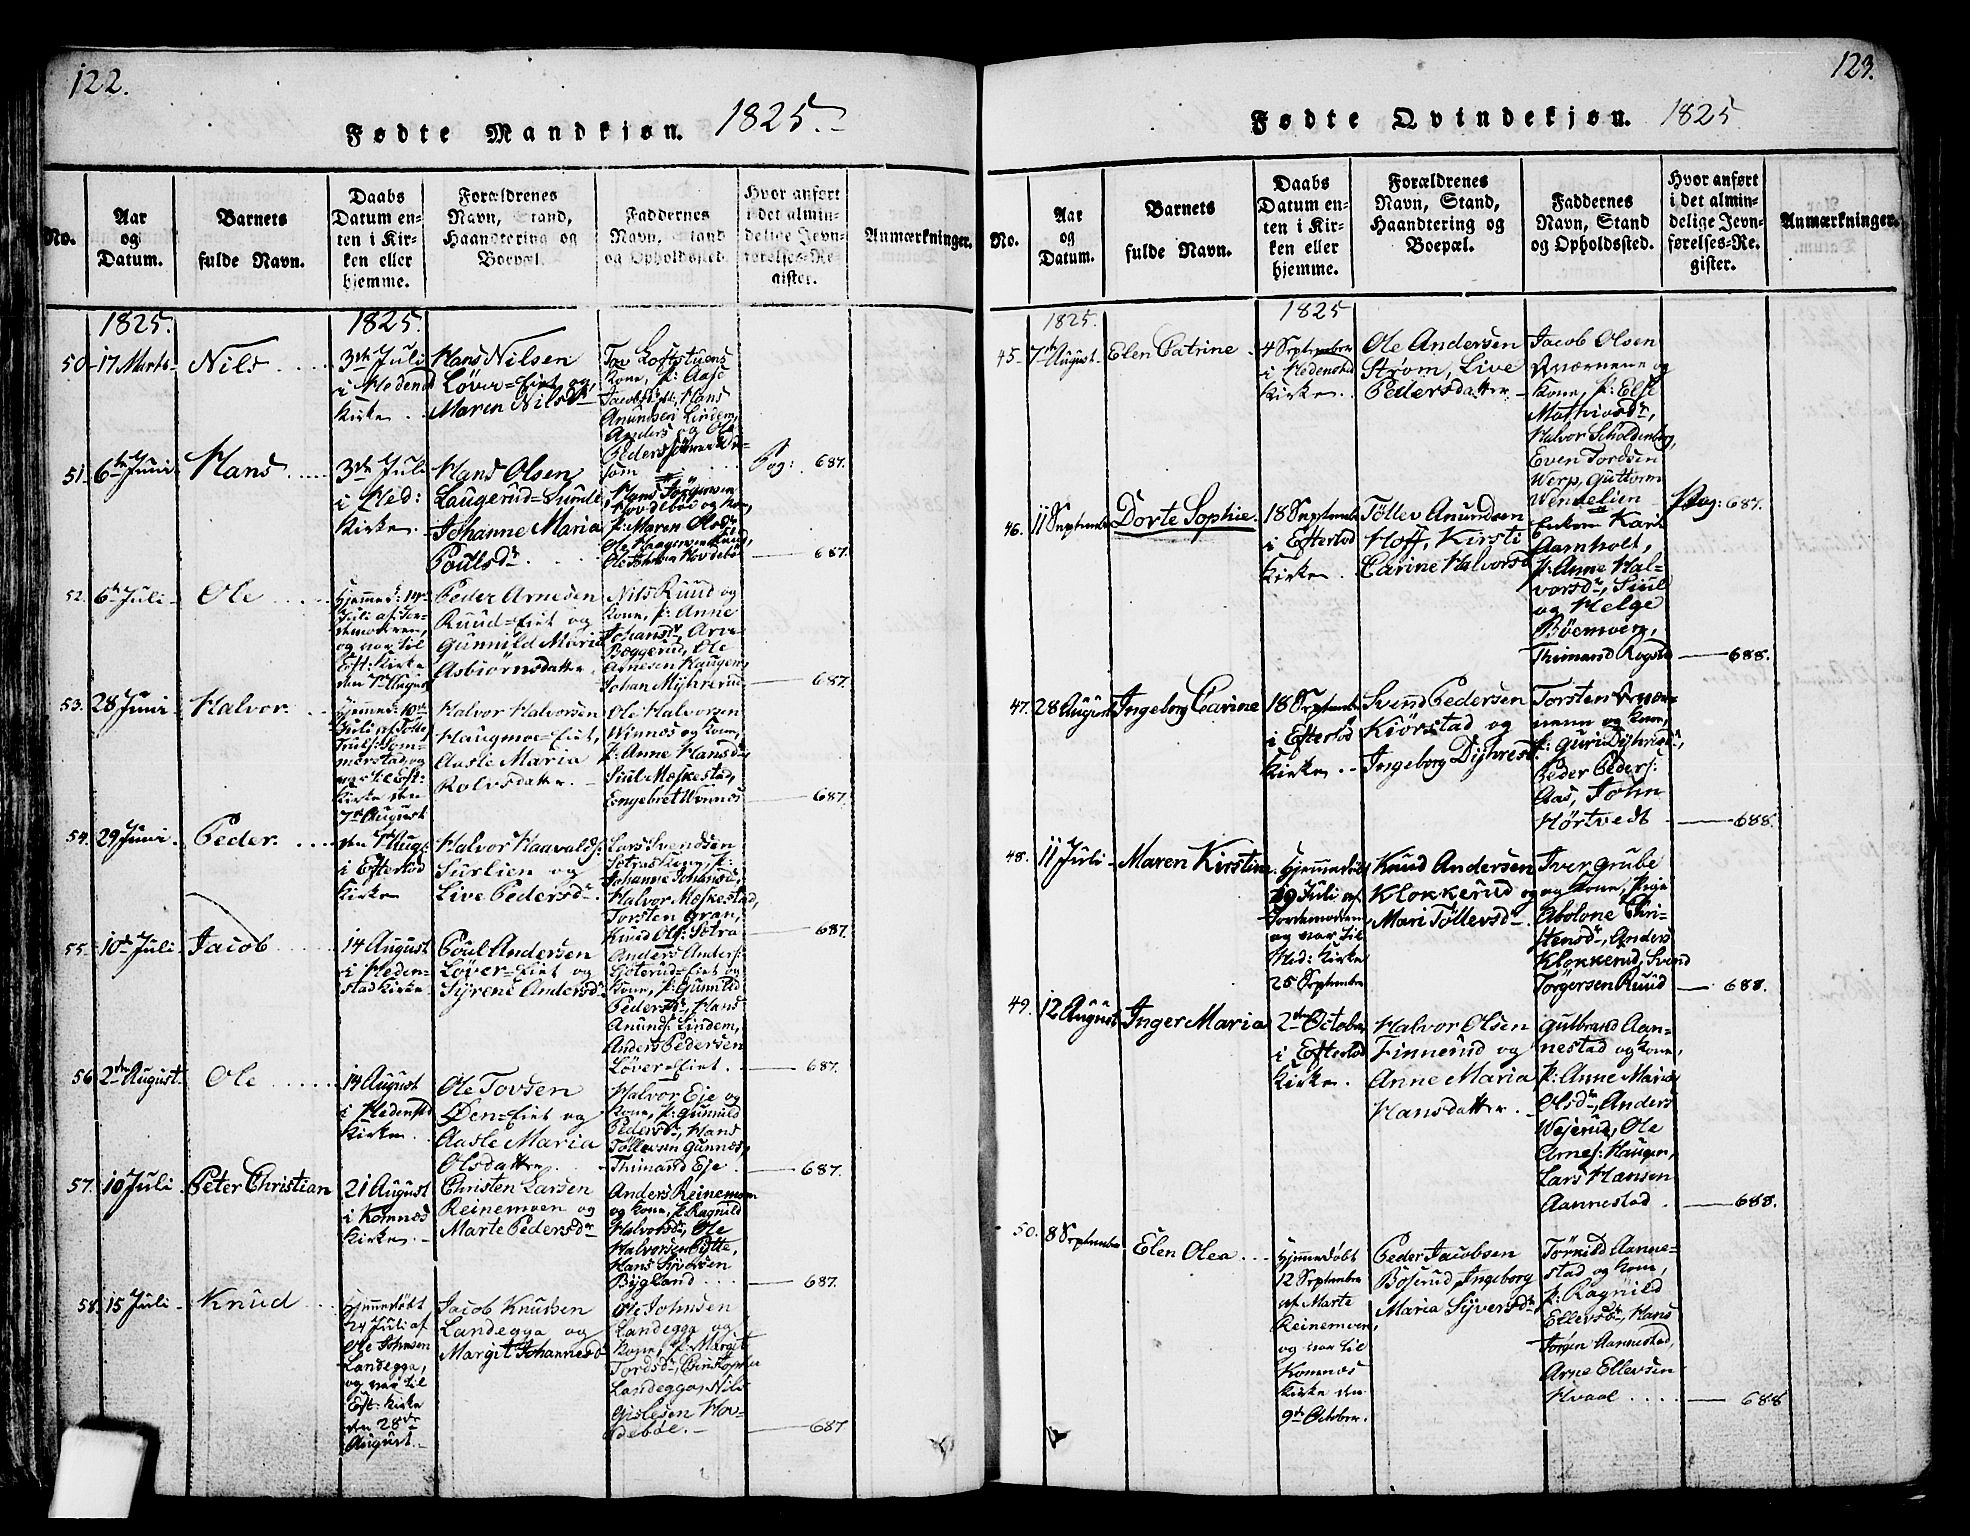 122.
Fødte Mandkjøn. 1825.
No.
Aar
og
Datum.
Barnets
fulde Navn.
Daabs
Datum en-
ten i Kir-
ken eller
hjemme.
Forældrenes
Navn, Stand,
Haandtering og
Boepæl.
Faddernes
Navn, Stand
og Opholdssted.
Hvor anført
i det almin-
delige Jevn-
førelses-Re-
gister.
Anmærkninger.
1825.
1825.
50. 17 Marts
Nils
3die Juli
i Hedenst
Kirke.
Hans Nilsen
Løver=Eiet og
Maren Nilsdr
Tov Loftstuens
Kone, p: Aase
Jacobsdatt, Hans
Anundsen Lindem,
Anders og Ole
Peders
51. 6te Juni
Hans
3die Juli
i Hed:
Kirke.
Hans Olsen
Laugerud=Sunde
Johanne Maria
Poulsdr
Hans Jørgensen
Hovdebøe og Kone,
p: Maren Olsdr
Ole Johnsen Hovdebø
Pag: 687.
687.
52. 6te Juli
Ole
Hjemmed: 14de
Juli af Jor-
demoderen,
og var til
Eft: Kirke
den 7de August
Peder Arnesen
Ruud=Eiet og
Gunnild Marie
Asbiørnsdatter
Nils Ruud og
Kone, p: Anne
Johansdr, Arve
Bæggerud, Ole
Arnesen Haugen,
Johan Myhrerud
687.
53. 28 Juni
Halvor
Hjemmed: 10de
Juli af Tolle
Truls: Som-
merstad og
var til Eft:
Kirke den
7de August
Halvor Halvorsen
Haugmoe=Eiet,
Aasle Maria
Rolvsdatter
Ole Halvorsen
Winnes og Kone,
p: Anne Hansdr,
Siul Møkestad,
Engebret Winnes
687.
54. 29 Juni
Peder
den 7de Aug:
i Efterlod
Kirke
Halvor Haavalds:
Surlien og
Live Pedersdr
Lars Svendsen
Sætras Kone, p:
Johanne Johansdr,
Halvor Møkestad,
Torsten Gran,
Knud Ols: Sætra
687.
55. 10de Juli
Jacob
14 August
i Heden-
stad Kirke
Poul Andersen
Løver=Eiet og
Syrene Andersdr
Anders Anders:
Gøterud=Eiet og
Kone, p: Gunnild
Pedersdr, Hans
Anunds: Lindem,
Anders Pedersen
Løver=Eiet.
687.
56 2den August
Ole
14 August
i Hedenstd
Kirke
Ole Tovsen
Øen=Eiet og
Aasle Maria
Olsdatter
Halvor Eje og
Kone, p: Gunnild
Pedersdr, Hans
Tøllevsen Gunnes,
Thimand Eje
687.
57. 10 Juli
Peter Christian
21 August
i Komnæs
Kirke
Christen Larsen
Reinemoen og
Marte Pedersdr
Anders Reinemoen
og Kone, p: Ragnild
Halvorsdr, Ole
Halvorsen Pytte,
Hans Syversen
Bygland
687.
58. 15 Juli
Knud
Hjemmedøbt
24 Juli af
Ole Johnsen
Landegga,
og var til
Eft: Kirke
den 28de
August
Jacob Knudsen
Landegga og
Margit Johannesdr
Ole Johnsen
Landegga og
Kone, p: Margit
Tordsdr, Christopher
Landegga, Nils
Gislesen Hov-
debøe.
687
123.
Fødte Qvindekjøn. 1825
No.
Aar
og
Datum.
Barnets
fulde Navn.
Daabs
Datum en-
ten i Kir-
ken eller
hjemme.
Forældrenes
Navn, Stand,
Haandtering og
Boepæl.
Faddernes
Navn, Stand
og Opholdssted.
Hvor anført
i det almin-
delige Jevn-
førelses-Re-
gister.
Anmærkninger.
1825.
1825
45. 7de August.
Elen Catrine
4 September
i Hedenstad
Kirke
Ole Andersen
Strøm, Live
Pedersdatter
Jacob Olsen
Qværnene og
Kone, p: Else
Mathiasdr,
Halvor Scholdenberg,
Even Tordsen
Werp, Guttorm
Wendelien
Pag: 687.
46. 11 September
Dorte Sophie
18 September
i Efterlod
Kirke
Tøllev Anundsen
Hoff, Kirsti
Carine Halvorsd
Enken Kari
Aarnholt,
p: Anne Hal-
vorsdr, Siul
og Helge
Bøemoen,
Thimand Rogstad
688.
47. 28 August
Ingeborg Carine
18 September
i Efterlod
Kirke
Svend Pedersen
Kiørstad og
Ingeborg Dyhresdr
Torsten Qvær-
nene og Kone,
p: Guri Dyhresdr,
Peder Peders:
Aas, John
Hørtvedt
688.
48. 11 Juli
Maren Kirstine
Hjemmedøbt
19 Juli af
Jordemoderen
og var til
Hed: Kirke
25 September
Knud Andersen
Klokkerud og
Mari Tøllevsdr
Iver Grube
og Kone, Pige
Abolone Chri-
stensdr, Anders
Klokkerud, Svend
Torgersen Ruud
688.
49. 12 August
Inger Maria
2den October
i Efterlod
Kirke.
Halvor Olsen
Finnerud og
Anne Maria
Hansdatter
Gulbrand Aan-
nestad og Kone,
p: Anne Marie
Olsdr, Anders
Wejerud, Ole
Arnes: Haugen,
Lars Hansen
Aannestad
688.
50. 8 September
Elen Olea
Hjemmedøbt
12 September
af Marte
Reinemoen,
og var til
Komnæs
Kirke den
9de October.
Peder Jacobsen
Boserud, Ingeborg
Maria Syversdr
Tørkild Aanne-
stad og Kone,
p: Ragnild
Ellevsdr, Hans
Jørgen Aannestad,
Arne Ellevsen
Hvaal
688